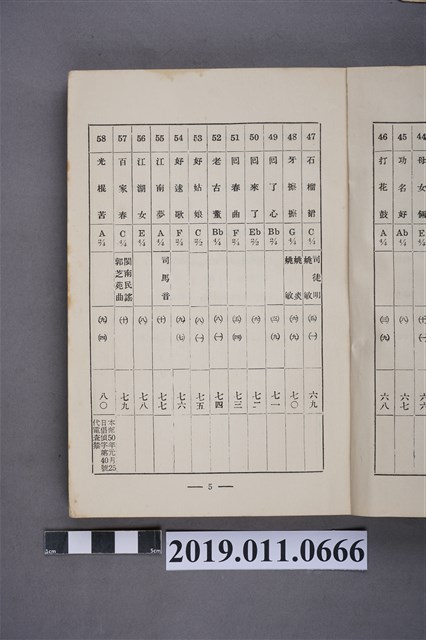 44 母女倆 E 六六
45 功名好 Ab 4/4 ㈧ ㈠ 六七
46 打花鼓 A 4/4 ㈢ ㈨ 六八
47 石榴裙 C 4/4 司徒明 ㈤ ㈠ 六九
48 牙擦擦 G 4/4 姚敏 姚敏 ㈥ ㈨ 七〇
49 回了心 Bb 2/4 ㈢ ㈨ 七一
50 回來了 Eb 2/2 ㈥ 七二
51 回春曲 F 2/4 ㈤ ㈣ 七三
52 老古董 Bb 2/4 ㈧ ㈠ 七四
53 好姑娘 C 2/2 ㈧ ㈠ 七五
54 好迷歌 F 2/2 ㈨ ㈦ 七六
55 江南夢 A 4/4 司馬音 ㈩ 七七
56 江湖女 E 4/4 ㈧ 七八
57 百家春 C 2/4 閩南民謠 郭芝苑曲 ㈩ 七九
58 光棍苦 A 2/4 ㈨ ㈣ 八〇
50年元月25
日 字第40號
代電查禁
— 5 —
2cm 5cm
2019.011.0666